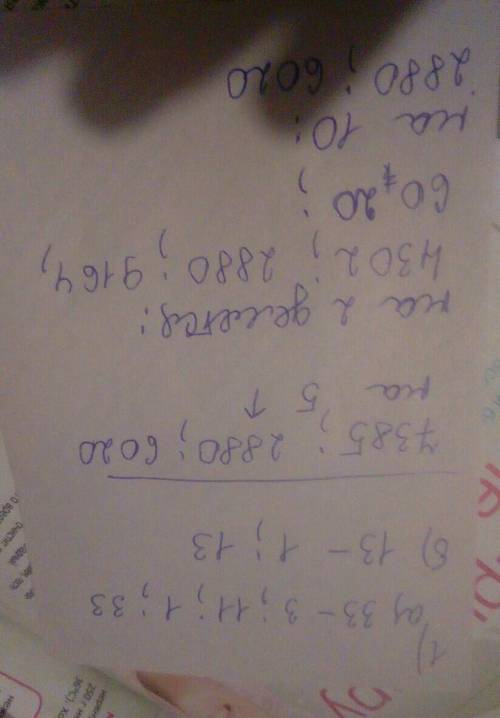 1) а) 33 - 3; 11; 1; 33
б) 13 - 1; 13
7385; 2880; 6020
на 5 ↑
на 2 делется:
4302; 2880; 9164,
6020;
на 10:
2880; 6020